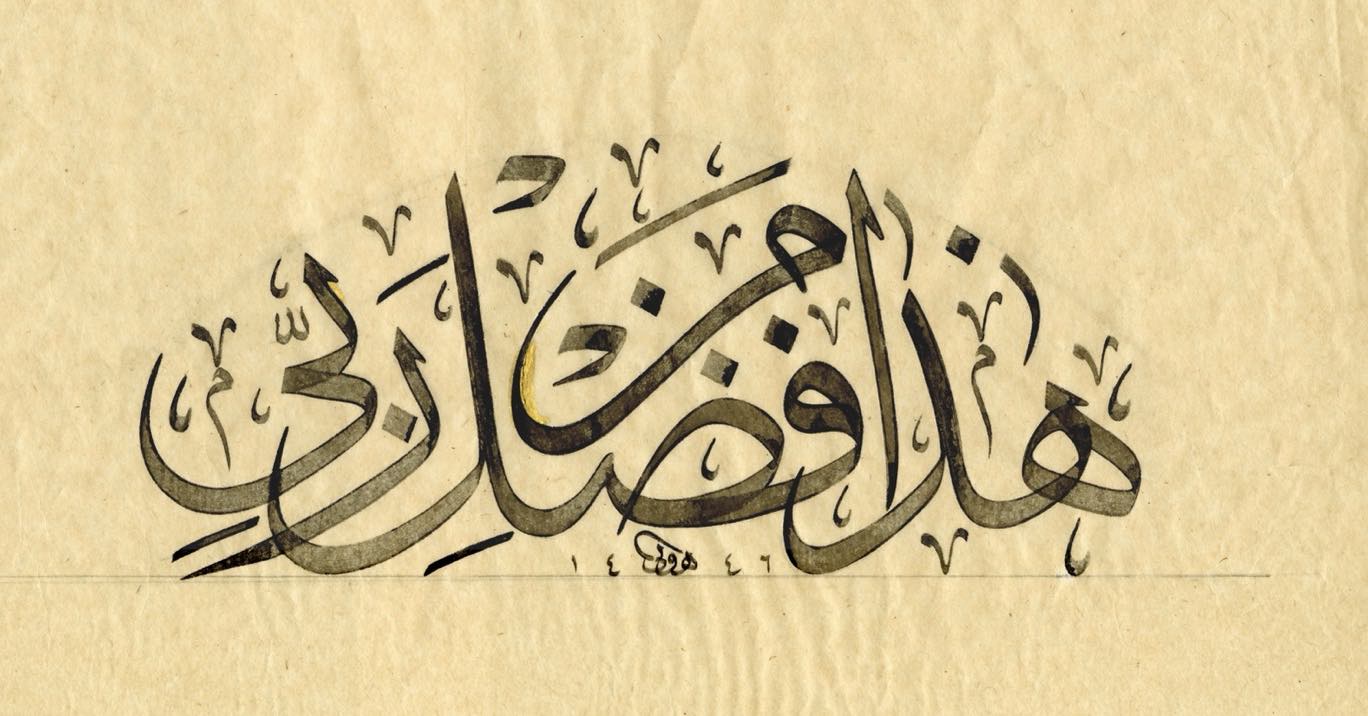 هٰذَا مِنْ فَضْلِ رَبِّي
١٤ ٤٦